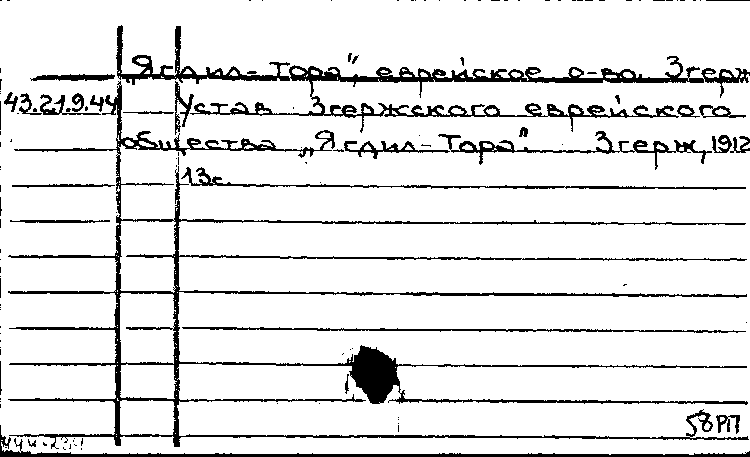 „Ягдил-Тора", еврейское о-во. Згерж
43.21.9.44 Устав Згержского еврейского
общества „Ягдил-Тора". Згерж, 1912
13с.
58РП